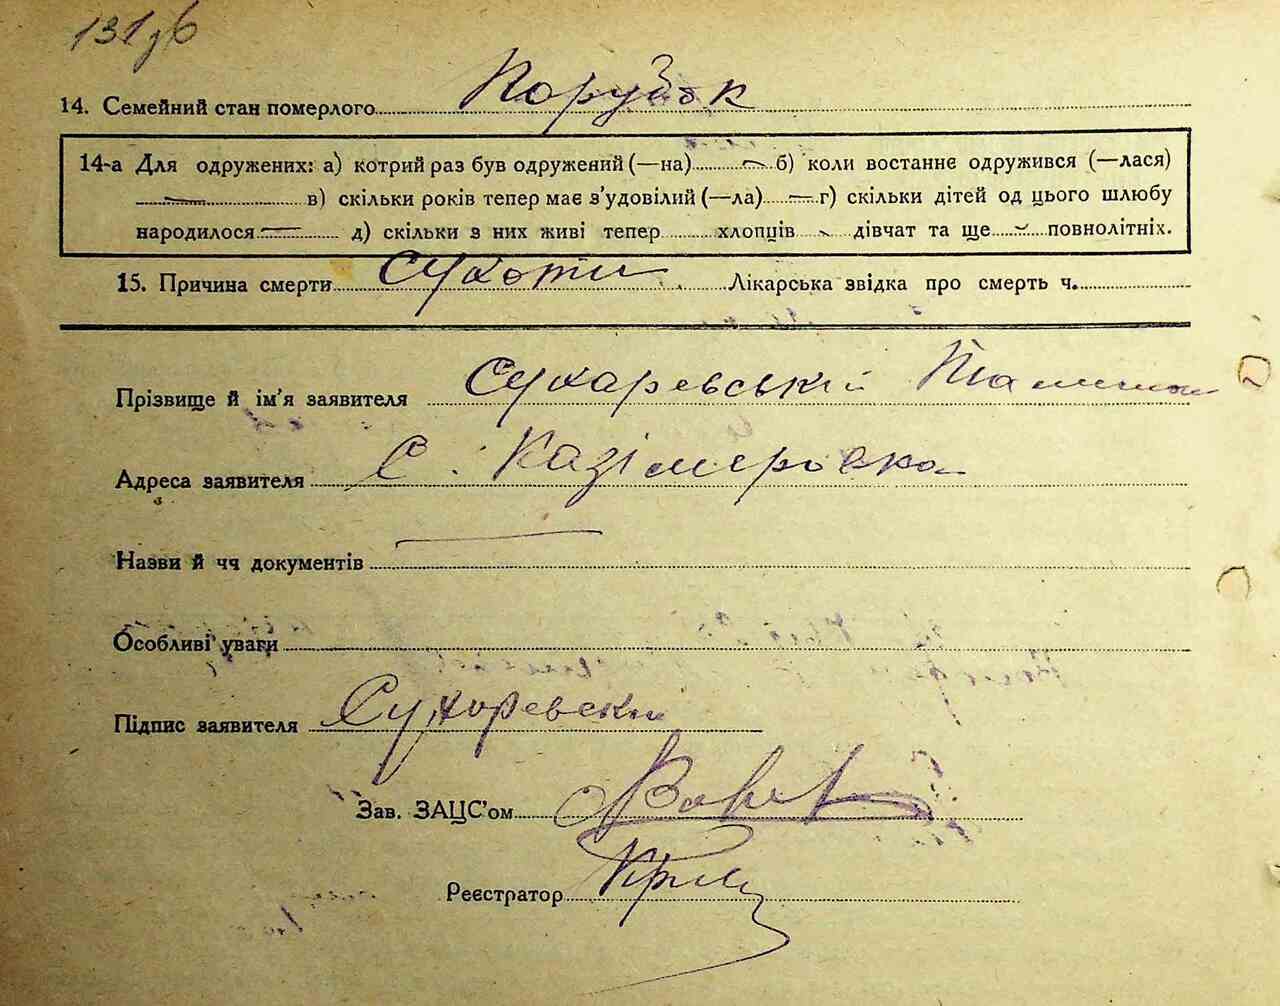 131зб
14. Семейний стан померлого Порубок
14-а Для одружених: а) котрий раз був одружений (—на) — б) коли востаннє одружився (—лася)
— в) скільки років тепер має з'удовілий (—ла) — г) скільки дітей од цього шлюбу
народилося — д) скільки з них живі тепер хлопців - дівчат та ще - повнолітніх.
15. Причина смерти Сухоти Лікарська звідка про смерть ч.
Прізвище й ім'я заявителя Сухаревський
Адреса заявителя С. Казімеровка
Назви й чч документів —
Особливі уваги
Підпис заявителя Сухоревский
Зав. ЗАЦС'ом
Реєстратор